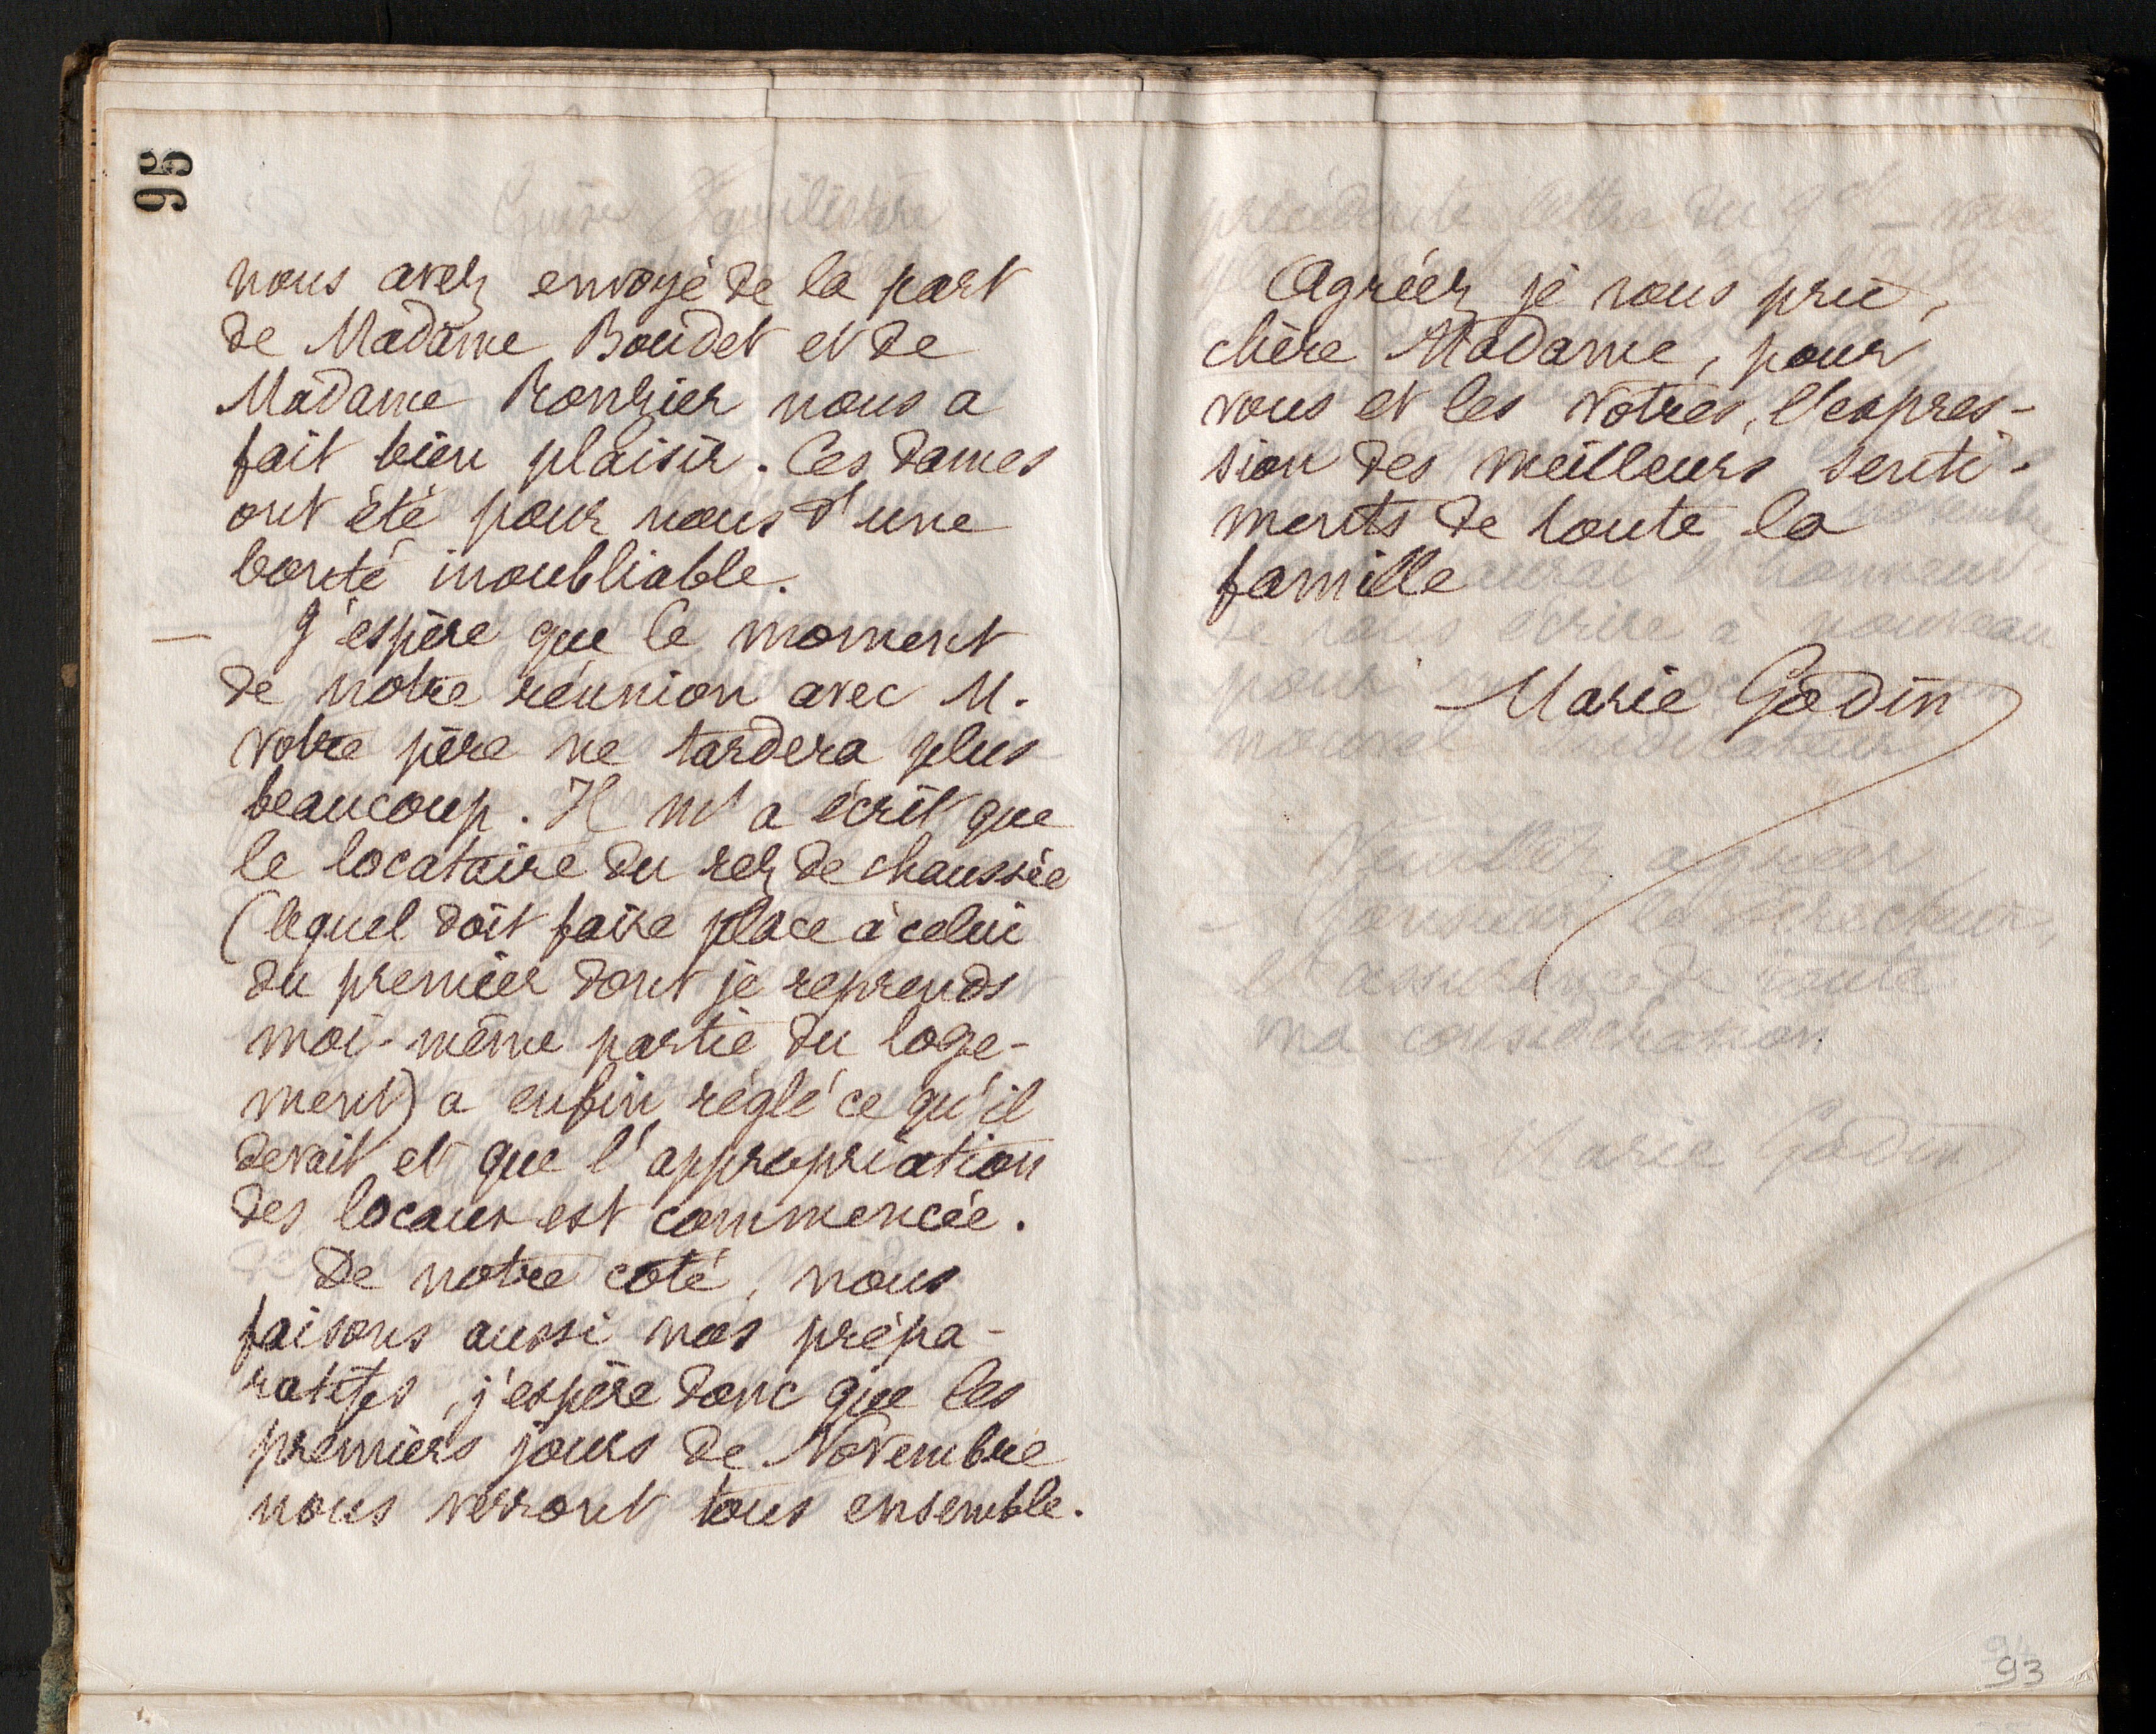 95
nous avez envoyé de la part
de Madame Boudet et de
Madame Ronzier nous a
fait bien plaisir. Ces dames
ont été pour nous d'une
bonté inoubliable.
— J'espère que le moment
de notre réunion avec M.
votre père ne tardera plus
beaucoup. Il m'a écrit que
le locataire du rez de chaussée
(lequel doit faire place à celui
du premier dont je reprends
moi-même partie du loge-
ment) a enfin réglé ce qu'il
devait et que l'appropriation
des locaux est commencée.
De notre coté, nous
faisons aussi nos prépa-
ratifs, j'espère donc que les
premiers jours de Novembre
nous verront tous ensemble.
Agréez je vous prie,
chère Madame, pour
vous et les vôtres, l'expres-
sion des meilleurs senti-
ments de toute la
famille
Marie Godin
93